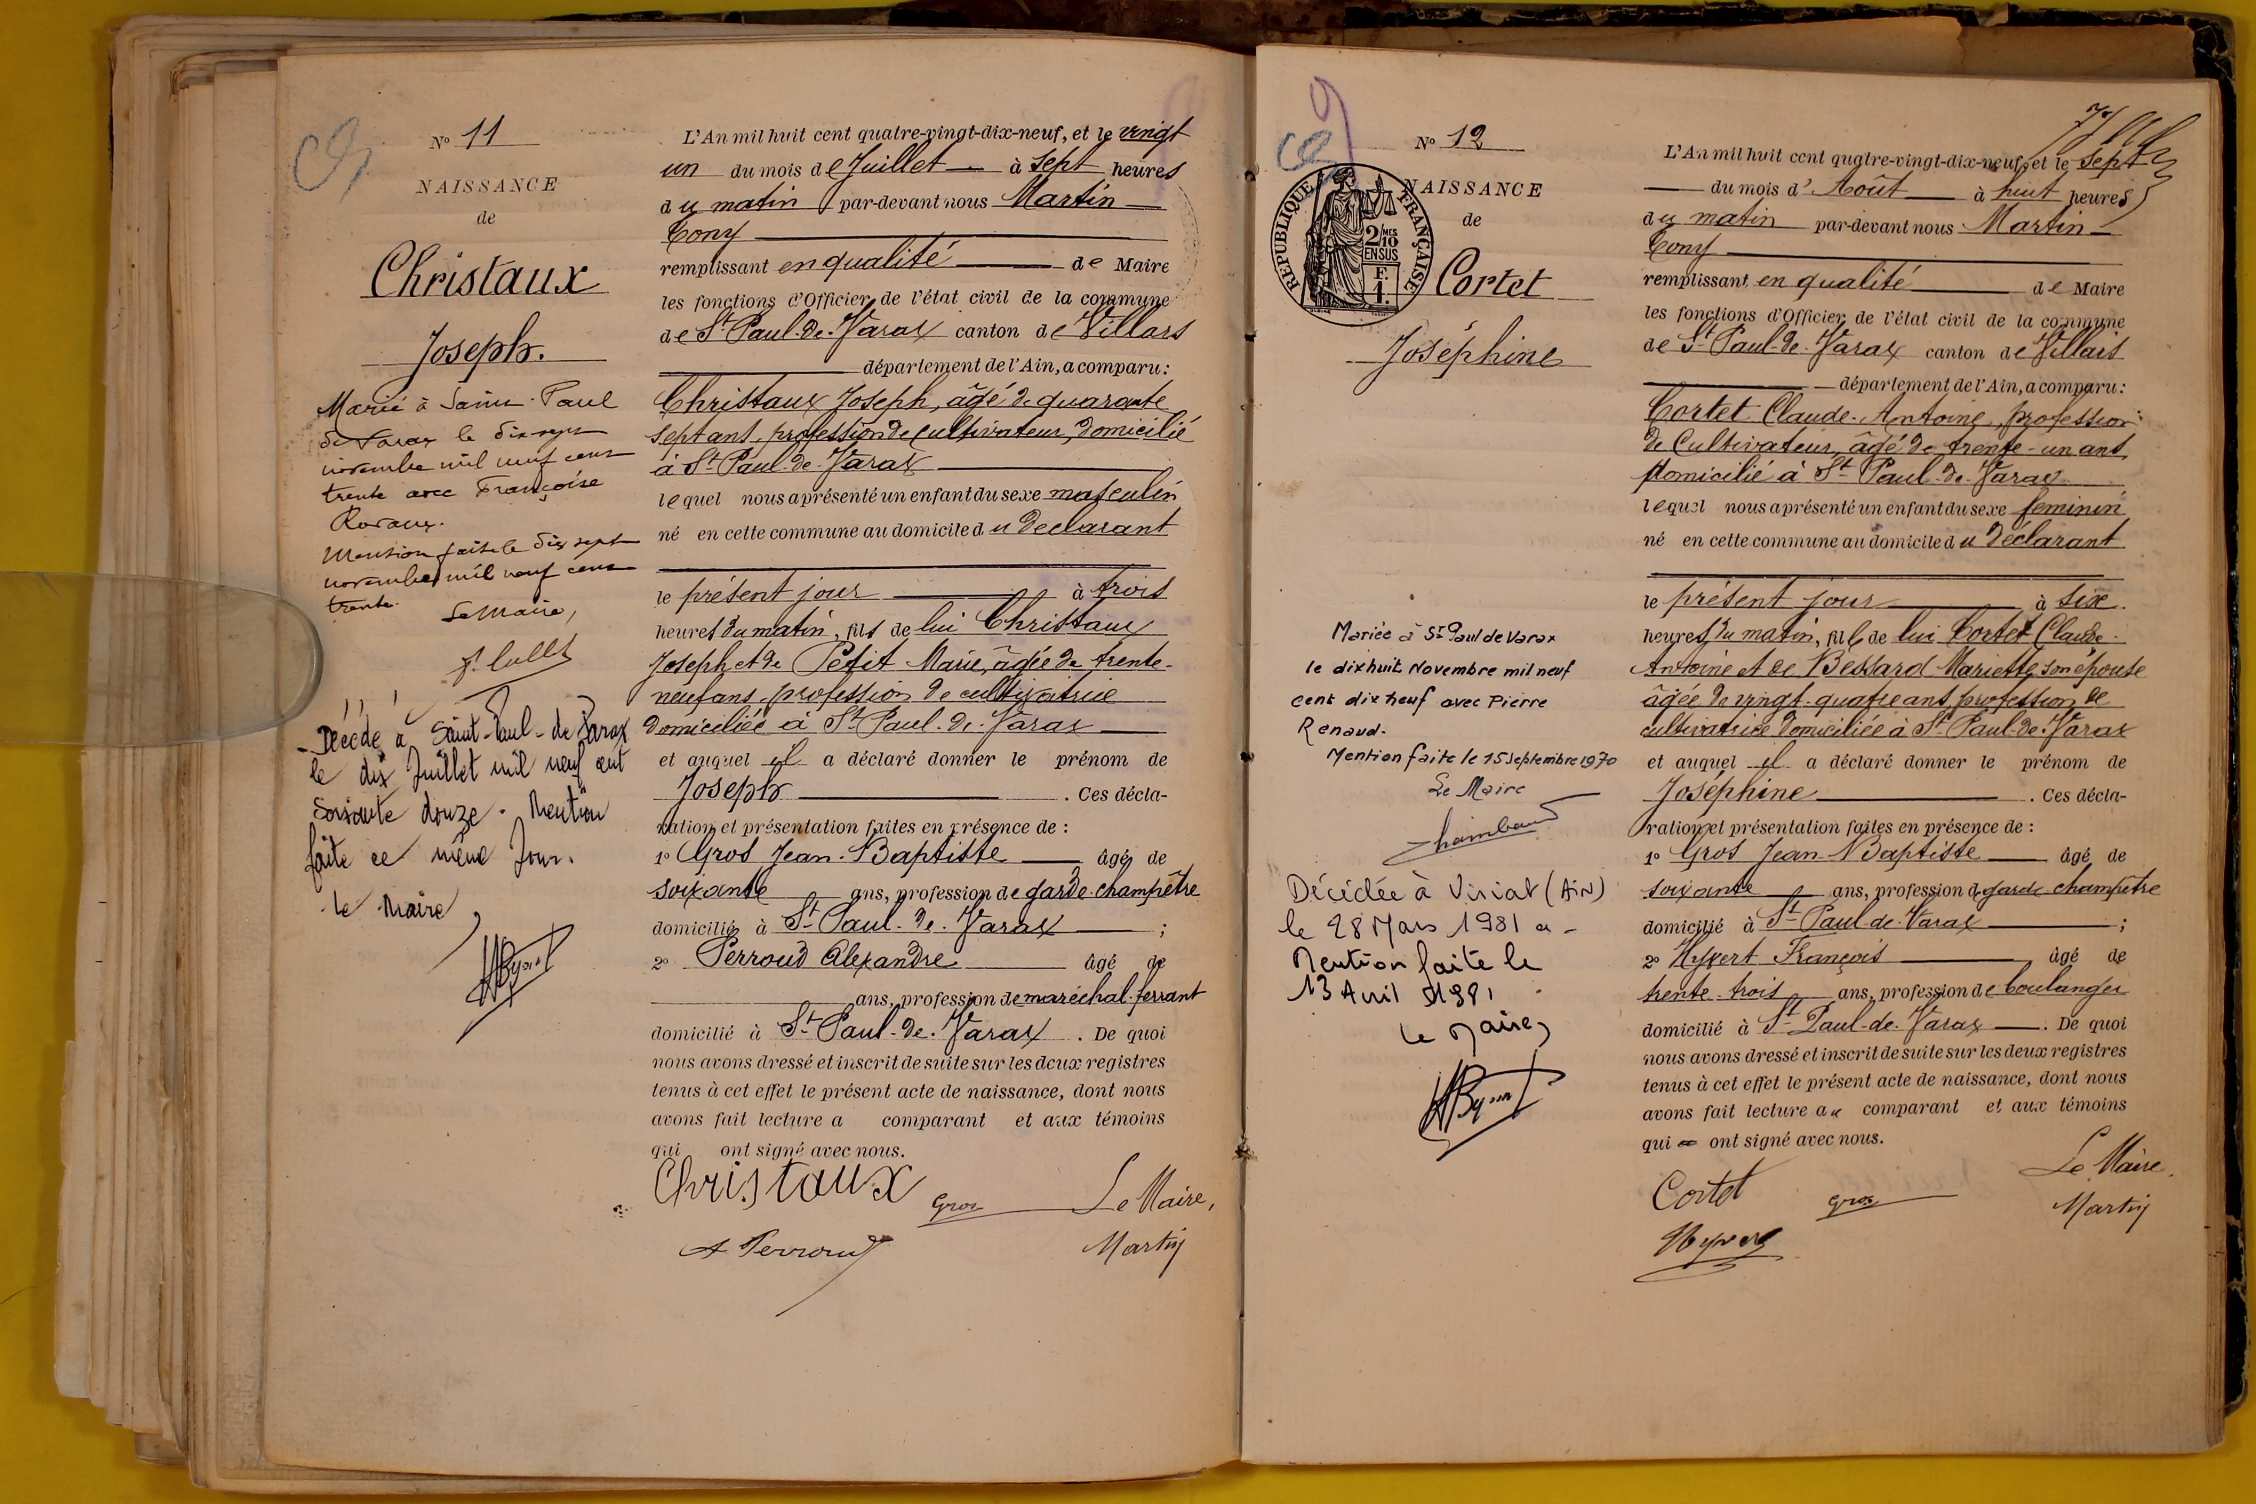 Nº 11
NAISSANCE
de
Christaux
Joseph.
Marié à Saint-Paul
de Varax le dix sept
novembre mil neuf cent
trente avec Françoise
Mention faite le dix sept
novembre mil neuf cent
trente.
Le Maire,
Décédé à Saint-Paul-de-Varax
le dix Juillet mil neuf cent
soixante douze. Mention
faite ce même Jour.
le Maire,
L'An mil huit cent quatre-vingt-dix-neuf, et le vingt
un du mois de Juillet à sept heures
du matin par-devant nous Martin
Tony
remplissant en qualité de Maire
les fonctions d'Officier de l'état civil de la commune
de St Paul-de-Varax canton de Villars
département de l'Ain, a comparu:
Christaux Joseph, âgé de quarante
sept ans, profession de cultivateur, domicilié
à St Paul-de-Varax
lequel nous a présenté un enfant du sexe masculin
né en cette commune au domicile du declarant
le présent jour à trois
heures du matin, fils de lui Christaux
Joseph et de Petit Marie, âgée de trente-
neuf ans, profession de cultivatrice
domiciliée à St Paul-de-Varax
et auquel il a déclaré donner le prénom de
Joseph. Ces décla-
ration et présentation faites en présence de :
1º Gros Jean-Baptiste âgé de
soixante ans, profession de garde-champêtre
domicilié à St Paul-de-Varax ;
2º Perroud Alexandre âgé de
ans, profession de maréchal-ferrant
domicilié à St Paul-de-Varax. De quoi
nous avons dressé et inscrit de suite sur les deux registres
tenus à cet effet le présent acte de naissance, dont nous
avons fait lecture a comparant et aux témoins
qui ont signé avec nous.
Christaux Gros Le Maire,
A Perroud Martin
Nº 12
NAISSANCE
de
RÉPUBLIQUE FRANÇAISE
2/10 MES
EN SUS
F.
1.
Cortet
Joséphine
Mariée à St Paul de Varax
le dix huit Novembre mil neuf
cent dix neuf avec Pierre
Renaud.
Mention faite le 15 septembre 1970
Le Maire
Décédée à Viriat (AiN)
le 28 Mars 1981
Mention faite le
13 Avril 1981
le Maire,
L'An mil huit cent quatre-vingt-dix-neuf, et le sept
du mois d'Août à huit heures
du matin par-devant nous Martin
Tony
remplissant en qualité de Maire
les fonctions d'Officier de l'état civil de la commune
de St Paul-de-Varax canton de Villars
département de l'Ain, a comparu:
Cortet Claude-Antoine, profession
de Cultivateur, âgé de trente-un ans,
domicilié à St Paul-de-Varax
lequel nous a présenté un enfant du sexe feminin
né en cette commune au domicile du déclarant
le présent jour à six
heures du matin, fille de lui Cortet Claude-
Antoine et de Bessard Mariette son épouse
âgée de vingt-quatre ans, profession de
cultivatrice domiciliée à St Paul-de-Varax
et auquel il a déclaré donner le prénom de
Joséphine. Ces décla-
ration et présentation faites en présence de :
1º Gros Jean-Baptiste âgé de
soixante ans, profession de garde-champêtre
domicilié à St Paul-de-Varax ;
2º François âgé de
trente-trois ans, profession de boulanger
domicilié à St Paul-de-Varax. De quoi
nous avons dressé et inscrit de suite sur les deux registres
tenus à cet effet le présent acte de naissance, dont nous
avons fait lecture au comparant et aux témoins
qui ont signé avec nous.
Le Maire,
Cortet Gros Martin